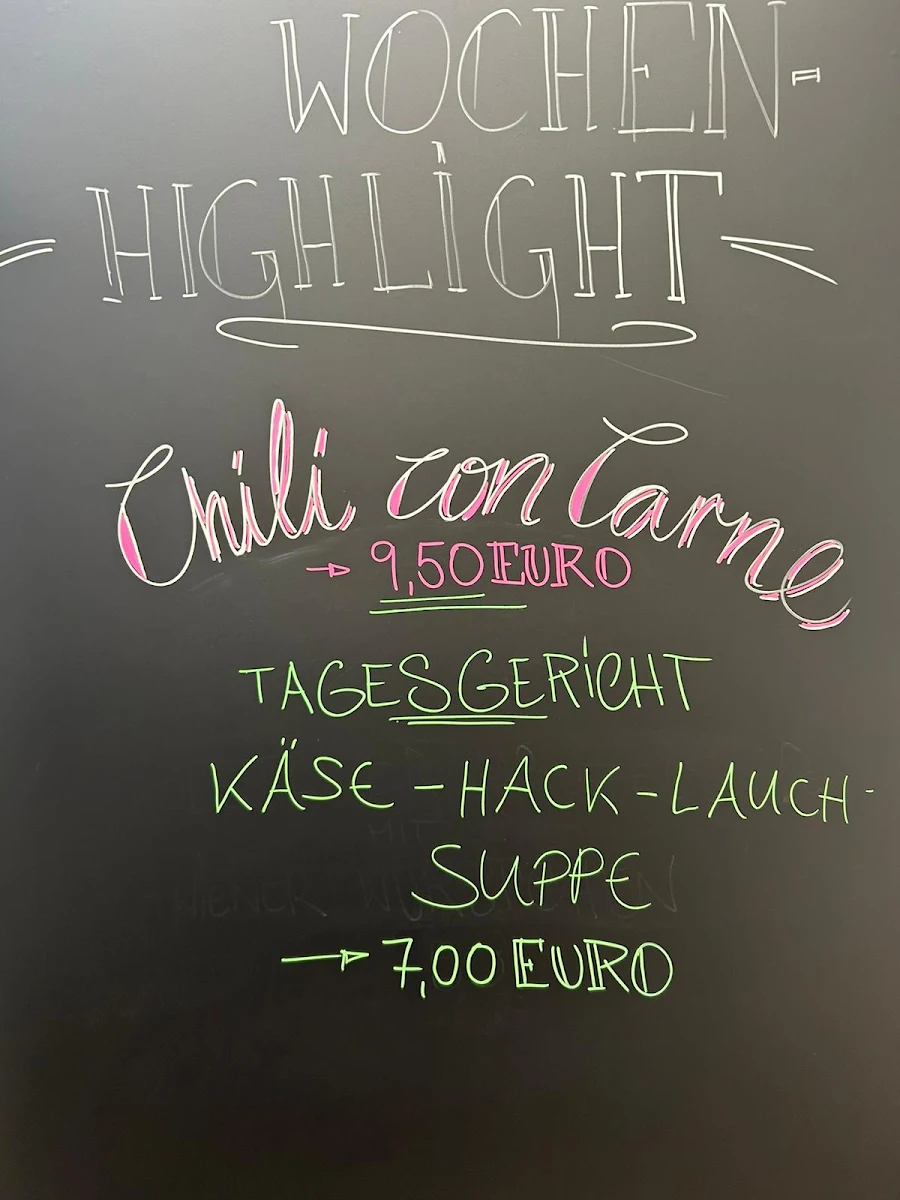 WOCHEN-
HIGHLIGHT
Chili con Carne
→ 9,50 EURO
TAGESGERICHT
KÄSE-HACK-LAUCH-
SUPPE
→ 7,00 EURO